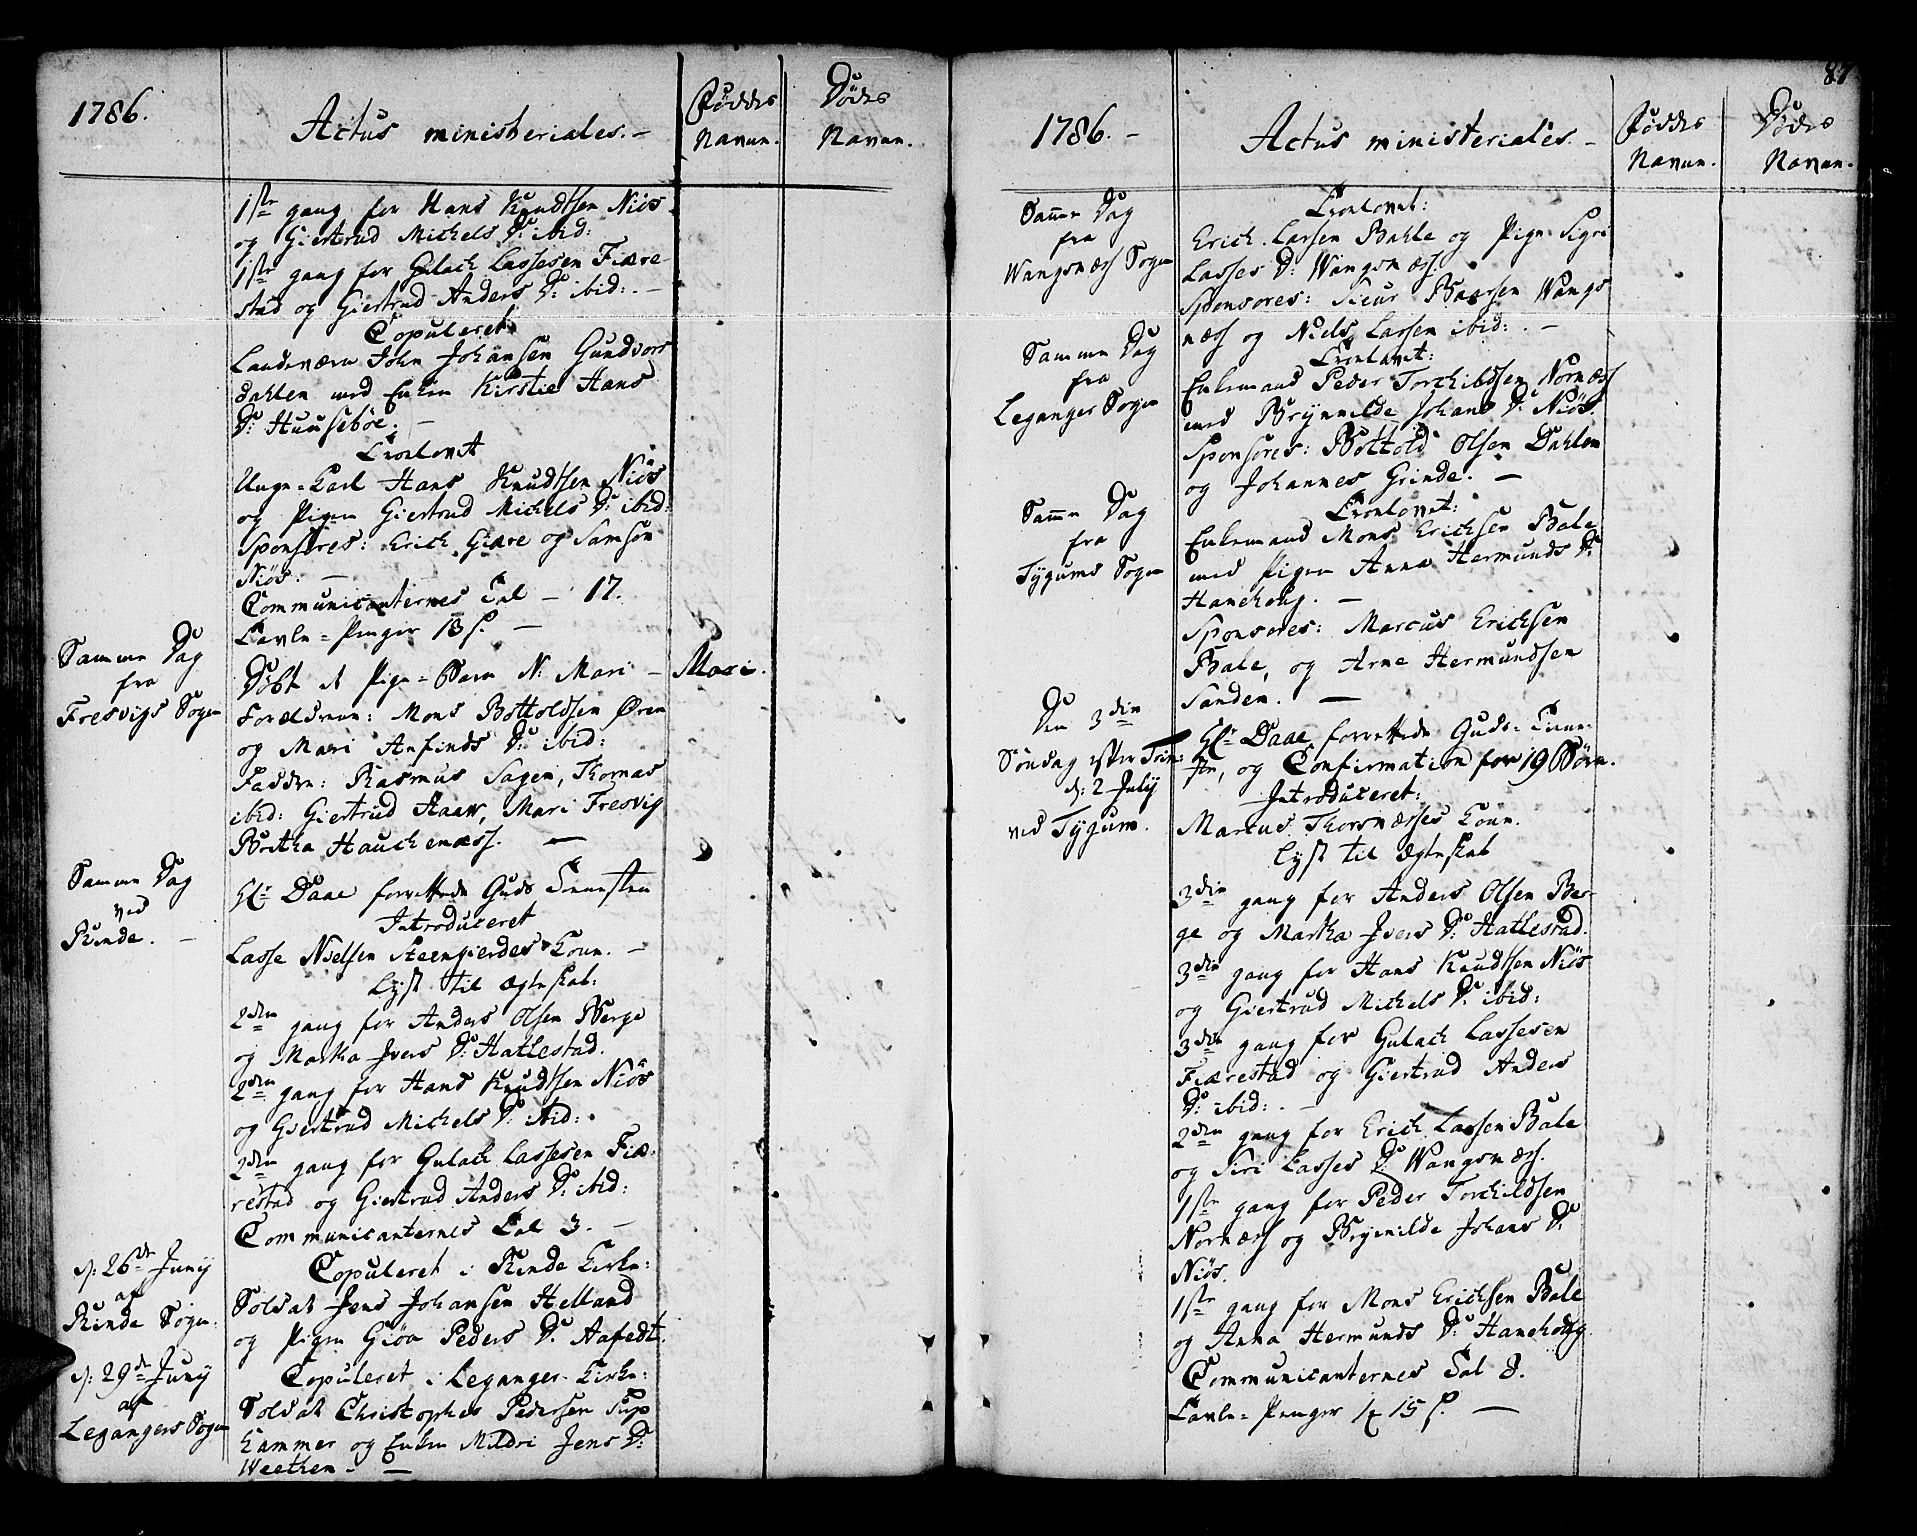 1786.
Actus ministeriales. -
Föddes
Navne.
Dödes
Navne.
1ste gang for Hans Knudtsen Niös
og Giertrud Michels D: ibid:
1ste gang for Gulach Lassesen Fiære-
stad og Giertrud Anders D: ibid: . -
Copuleret:
Landeværn John Johansen Gundvors
dahlen med Enken Kirstie Hans
D: Huuseböe. -
Trolovet
Unge-Karl Hans Knudtsen Niös
og Pigen Giertrud Michels D: ibid:
Sponsores: Erich Giære og Samson
Niös. -
Communicanternes Tal - 17.
Tavle-Penger 18 s. -
Samme Dag
fra
Fresvigs Sogn
Döbt et Pige-Barn N: Mari -
Mari.
Forældrene: Mons Bottoldsen Ören
og Mari Anfinds D: ibid:
Faddre: Rasmus Sagen, Thomas
ibid: Giertrud Haaw, Mari Fresvig
Britha Hauchenæss. -
Samme Dag
ved
Rinde. -
Hr Daae forrettede Guds Tienesten
Introduceret
Lasse Nielsen Steengierdes Kone. -
Lyst til Ægteskab:
2den gang for Anders Olsen Berge
og Martha Ivers D: Hatlestad.
2den gang for Hans Knudtsen Niös
og Giertrud Michels D: ibid: .
2den gang for Gulach Lassesen Fiæ-
restad og Giertrud Anders D: ibid:
Communicanternes Tal 3. -
d: 26de Juny
af
Rinde Sogn.
Copuleret i Rinde Kirke:
Soldat Jens Johansen Helland
og Pigen Giöa Peders D: Aafedt.
d: 29de Juny
af
Legangers Sogn
Copuleret i Leganger Kirke:
Soldat Christopher Pedersen Sup
Kammer og Enken Mildri Jens D:
Weethen. -
87
1786. -
Actus ministeriales. -
Föddes
Navne.
Dödes
Navne.
Samme Dag
fra
Wangsnæss Sogn
Trolovet:
Erich Larsen Bahle og Pige Sigri
Lasses D: Wangsnæss.
Sponsores: Siur Baarsen Wangs
næss og Niels Lassen ibid: . -
Samme Dag
fra
Leganger Sogn
Trolovet:
Enkemand Peder Torchildsen Nornæss
med Brynnilde Johans D: Niös.
Sponsores: Bottold Olsen Dahlen
og Johannes Grinde. -
Samme Dag
fra
Tygums Sogn
Trolovet:
Enkemand Mons Erichsen Bale
med Pigen Anna Hermunds D:
Hanehoug. -
Sponsores: Marcus Erichsen
Bale, og Arne Hermundsen
Sanden. -
Den 3die
Söndag efter Trin:
d: 2 July
ved Tygum.
Hr Daae forrettede Guds-Tiene-
sten, og Confirmation for 19 Börn.
Introduceret:
Marcus Thorsnæsses Kone.
Lyst til Ægteskab
3die gang for Anders Olsen Ber-
ge og Martha Ivers D: Hatlestad.
3die gang for Hans Knudtsen Niös
og Giertrud Michels D: ibid:
3die gang for Gulach Lassesen
Fiærestad og Giertrud Anders
D: ibid: . -
2den gang for Erich Lassen Bale
og Siri Lasses D: Wangsnæss.
1ste gang for Peder Torchildsen
Nornæss og Brynnilde Johans D:
Niös.
1ste gang for Mons Erichsen Bale
og Anna Hermunds D: Hanehoug.
Communicanternes Tal 8.
Tavle-Penger 15 s. -